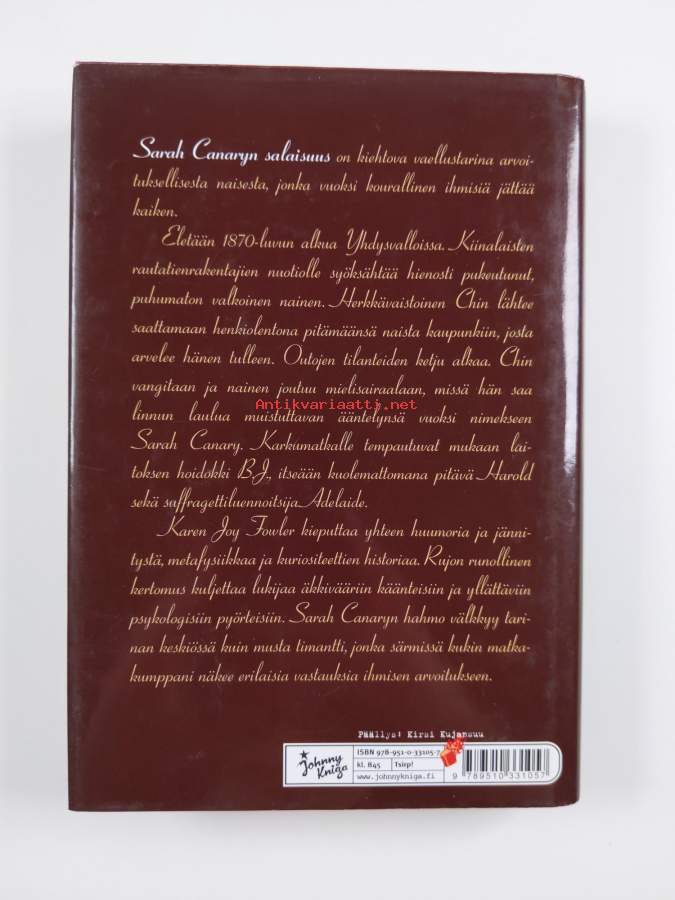 Sarah Canaryn salaisuus on kiehtova vaellustarina arvoi-
tuksellisesta naisesta, jonka vuoksi kourallinen ihmisiä jättää
kaiken.
Eletään 1870-luvun alkua Yhdysvalloissa. Kiinalaisten
rautatienrakentajien nuotiolle syöksähtää hienosti pukeutunut,
puhumaton valkoinen nainen. Herkkävaistoinen Chin lähtee
saattamaan henkiolentona pitämäänsä naista kaupunkiin, josta
arvelee hänen tulleen. Outojen tilanteiden ketju alkaa. Chin
vangitaan ja nainen joutuu mielisairaalaan, missä hän saa
Antikvariaatti.net
linnun laulua muistuttavan ääntelynsä vuoksi nimekseen
Sarah Canary. Karkumatkalle tempautuvat mukaan lai-
toksen hoidokki B.J., itseään kuolemattomana pitävä Harold
sekä saffragettiluennoitsija Adelaide.
Karen Joy Fowler kieputtaa yhteen huumoria ja jänni-
tystä, metafysiikkaa ja kuriositeettien historiaa. Rujon runollinen
kertomus kuljettaa lukijaa äkkivääriin käänteisiin ja yllättäviin
psykologisiin pyörteisiin. Sarah Canaryn hahmo välkkyy tari-
nan keskiössä kuin musta timantti, jonka särmissä kukin matka-
kumppani näkee erilaisia vastauksia ihmisen arvoitukseen.
Päällys: Kirsi Kujansuu
Johnny
Kniga
ISBN 978-951-0-33105-7
kl. 84.5 Tsirp!
www.johnnykniga.fi
9 789510 331057